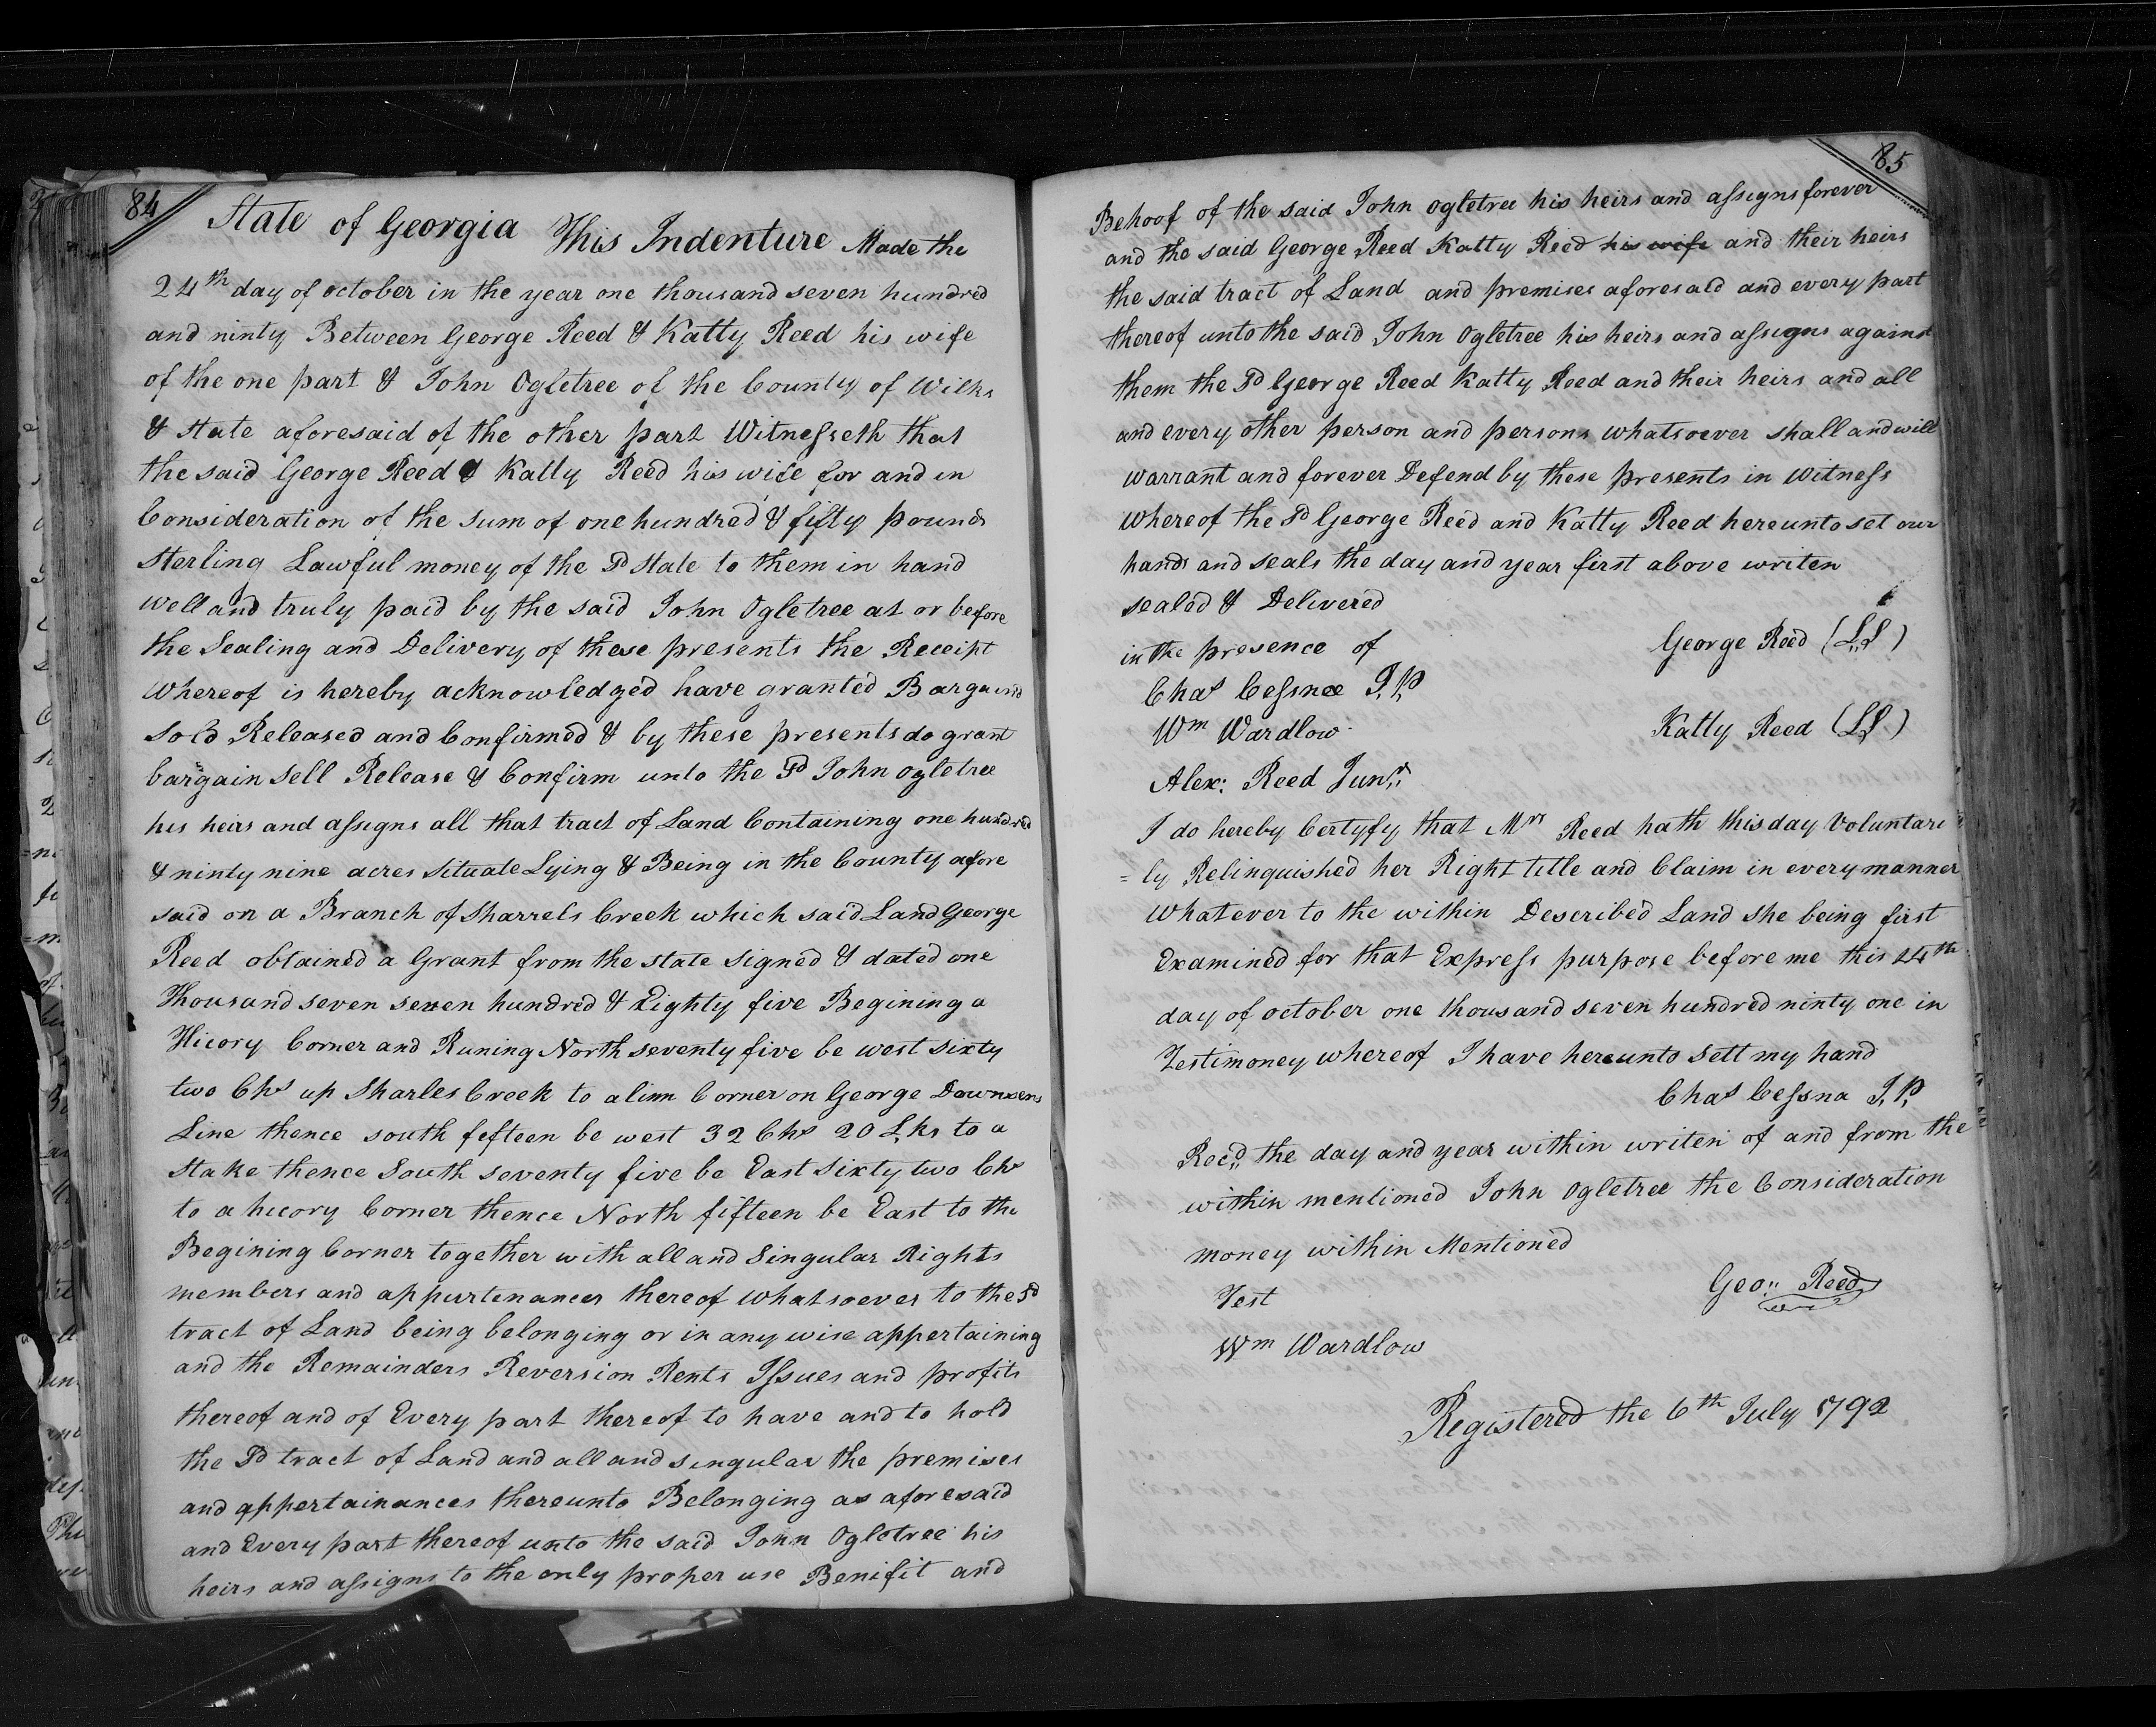 84
State of Georgia This Indenture Made the
24th day of october in the year one thousand seven hundred
and ninty Between George Reed & Katty Reed his wife
of the one part & John Ogletree of the County of Wilks
& state aforesaid of the other part Witnesseth that
the said George Reed & Katty Reed his wife for and in
Consideration of the sum of one hundred & fifty pounds
Sterling Lawful money of the Sd State to them in hand
well and truly paid by the said John Ogletree at or before
the Sealing and Delivery of these presents the Receipt
whereof is hereby acknowledged have granted Bargaind
Sold Released and Confirmed & by these presents do grant
bargain Sell Release & Confirm unto the Sd John Ogletree
his heirs and assigns all that tract of Land Containing one hundred
& ninty nine acres Situate Lying & Being in the County afore
said on a Branch of Sharrels Creek which said Land George
Reed obtained a Grant from the state signed & dated one
Thousand seven seven hundred & Eighty five Begining a
Hicory Corner and Runing North seventy five be west sixty
two Chs up Sharles Creek to a linn Corner on George
Line thence south fefteen be west 32 Chs 20 Lks to a
Stake thence South seventy five be East sixty two Chs
to a hicory Corner thence North fifteen be East to the
Begining Corner together with all and Singular Rights
members and appurtenances thereof whatsoever to the Sd
tract of Land being belonging or in any wise appertaining
and the Remainders Reversion Rents Issues and profits
thereof and of Every part thereof to have and to hold
the Sd tract of Land and all and singular the premises
and appertainances thereunto Belonging as aforesaid
and Every part thereof unto the said John Ogletree his
heirs and assigns to the only proper use Benifit and
85
Behoof of the said John Ogletree his heirs and assigns forever
and the said George Reed Katty Reed his wife and their heirs
the said tract of Land and premises aforesaid and every part
thereof unto the said John Ogletree his heirs and assigns against
them the Sd George Reed Katty Reed and their heirs and all
and every other person and persons whatsoever shall and will
warrant and forever Defend by these presents in Witness
Whereof the Sd George Reed and Katty Reed hereunto set our
hands and seals the day and year first above writen
sealed & Delivered
in the presence of George Reed (LS)
Chas Cessnee J.P.
Wm Wardlow Katty Reed (LS)
Alex: Reed Junr.
I do hereby Certyfy that Mrs Reed hath this day Voluntari
= ly Relinquished her Right title and Claim in every manner
Whatever to the within Described Land she being first
Examined for that Express purpose before me this 24th
day of october one thousand seven hundred ninty one in
Testimoney whereof I have hereunto Sett my hand
Chas Cessna J.P.
Recd. the day and year within writen of and from the
within mentioned John Ogletree the Consideration
money within Mentioned
Test Geo: Reed
Wm Wardlow
Registered the 6th July 1792